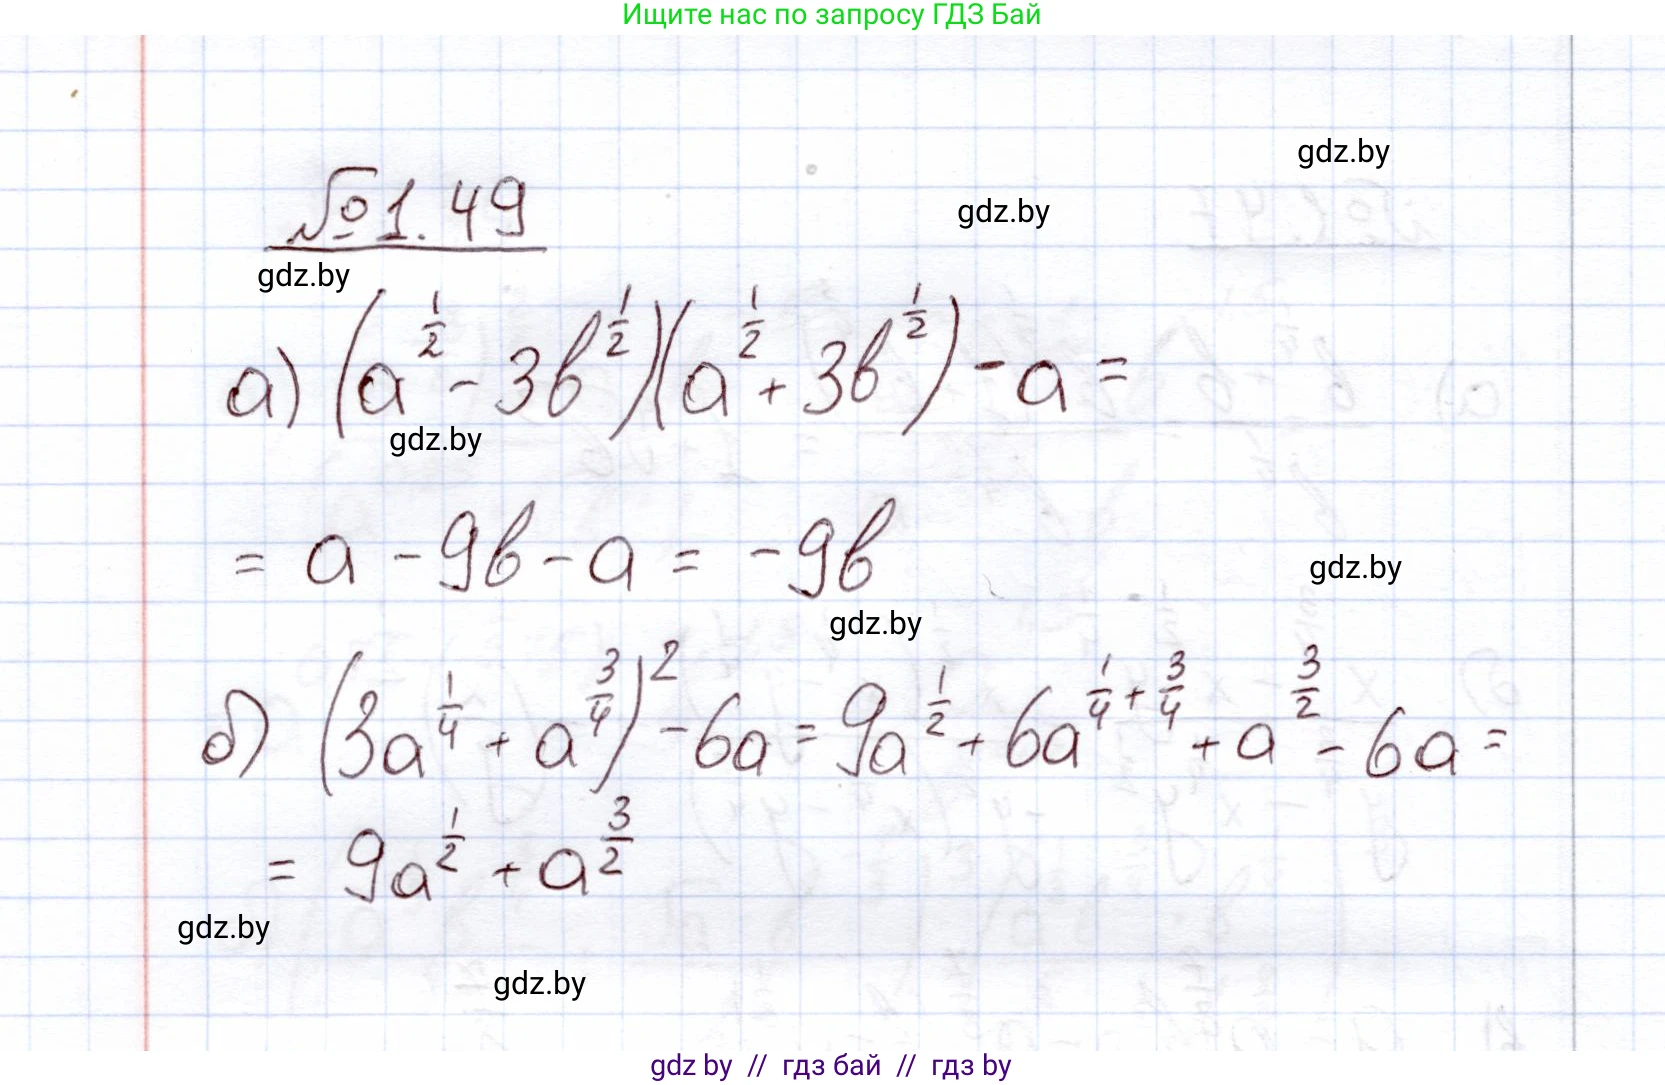 Ищите нас по запросу ГДЗ Бай
gdz.by
№1.49
gdz.by
gdz.by
а) (a^{1/2} - 3b^{1/2})(a^{1/2} + 3b^{1/2}) - a =
gdz.by
= a - 9b - a = -9b
gdz.by
gdz.by
б) (3a^{1/4} + a^{3/4})^2 - 6a = 9a^{1/2} + 6a^{1/4 + 3/4} + a^{3/2} - 6a =
= 9a^{1/2} + a^{3/2}
gdz.by
gdz.by
gdz by // гдз бай // гдз by